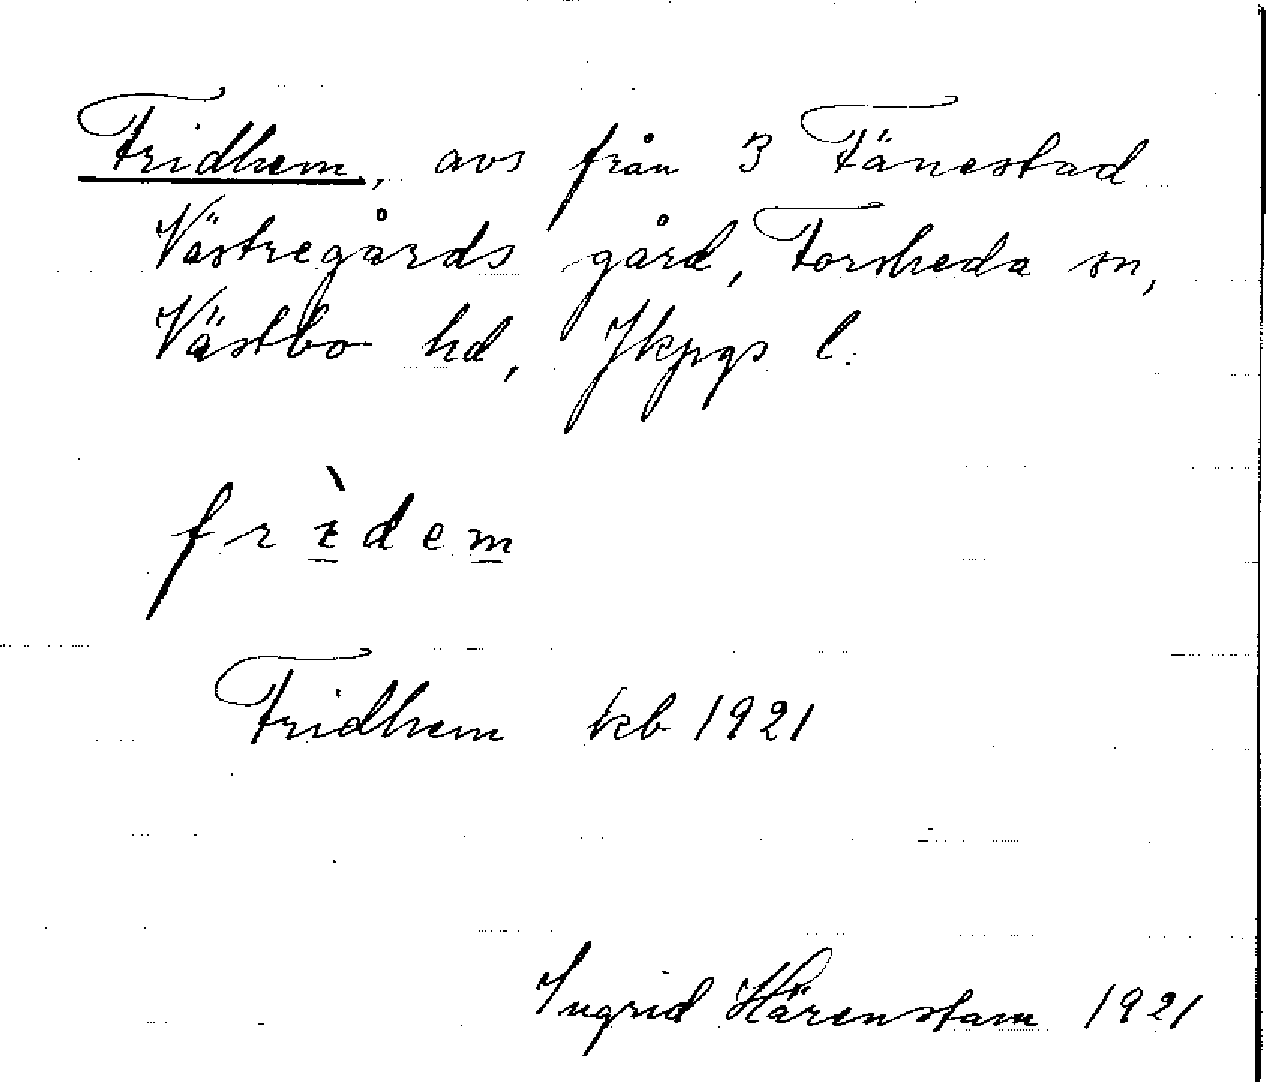 Fridhem, avs från 3 Fänestad
Västregårds gård, Forsheda sn,
Västbo hd, Jkpgs l.
frìdem
Fridhem kb 1921
Ingrid Härenstam 1921